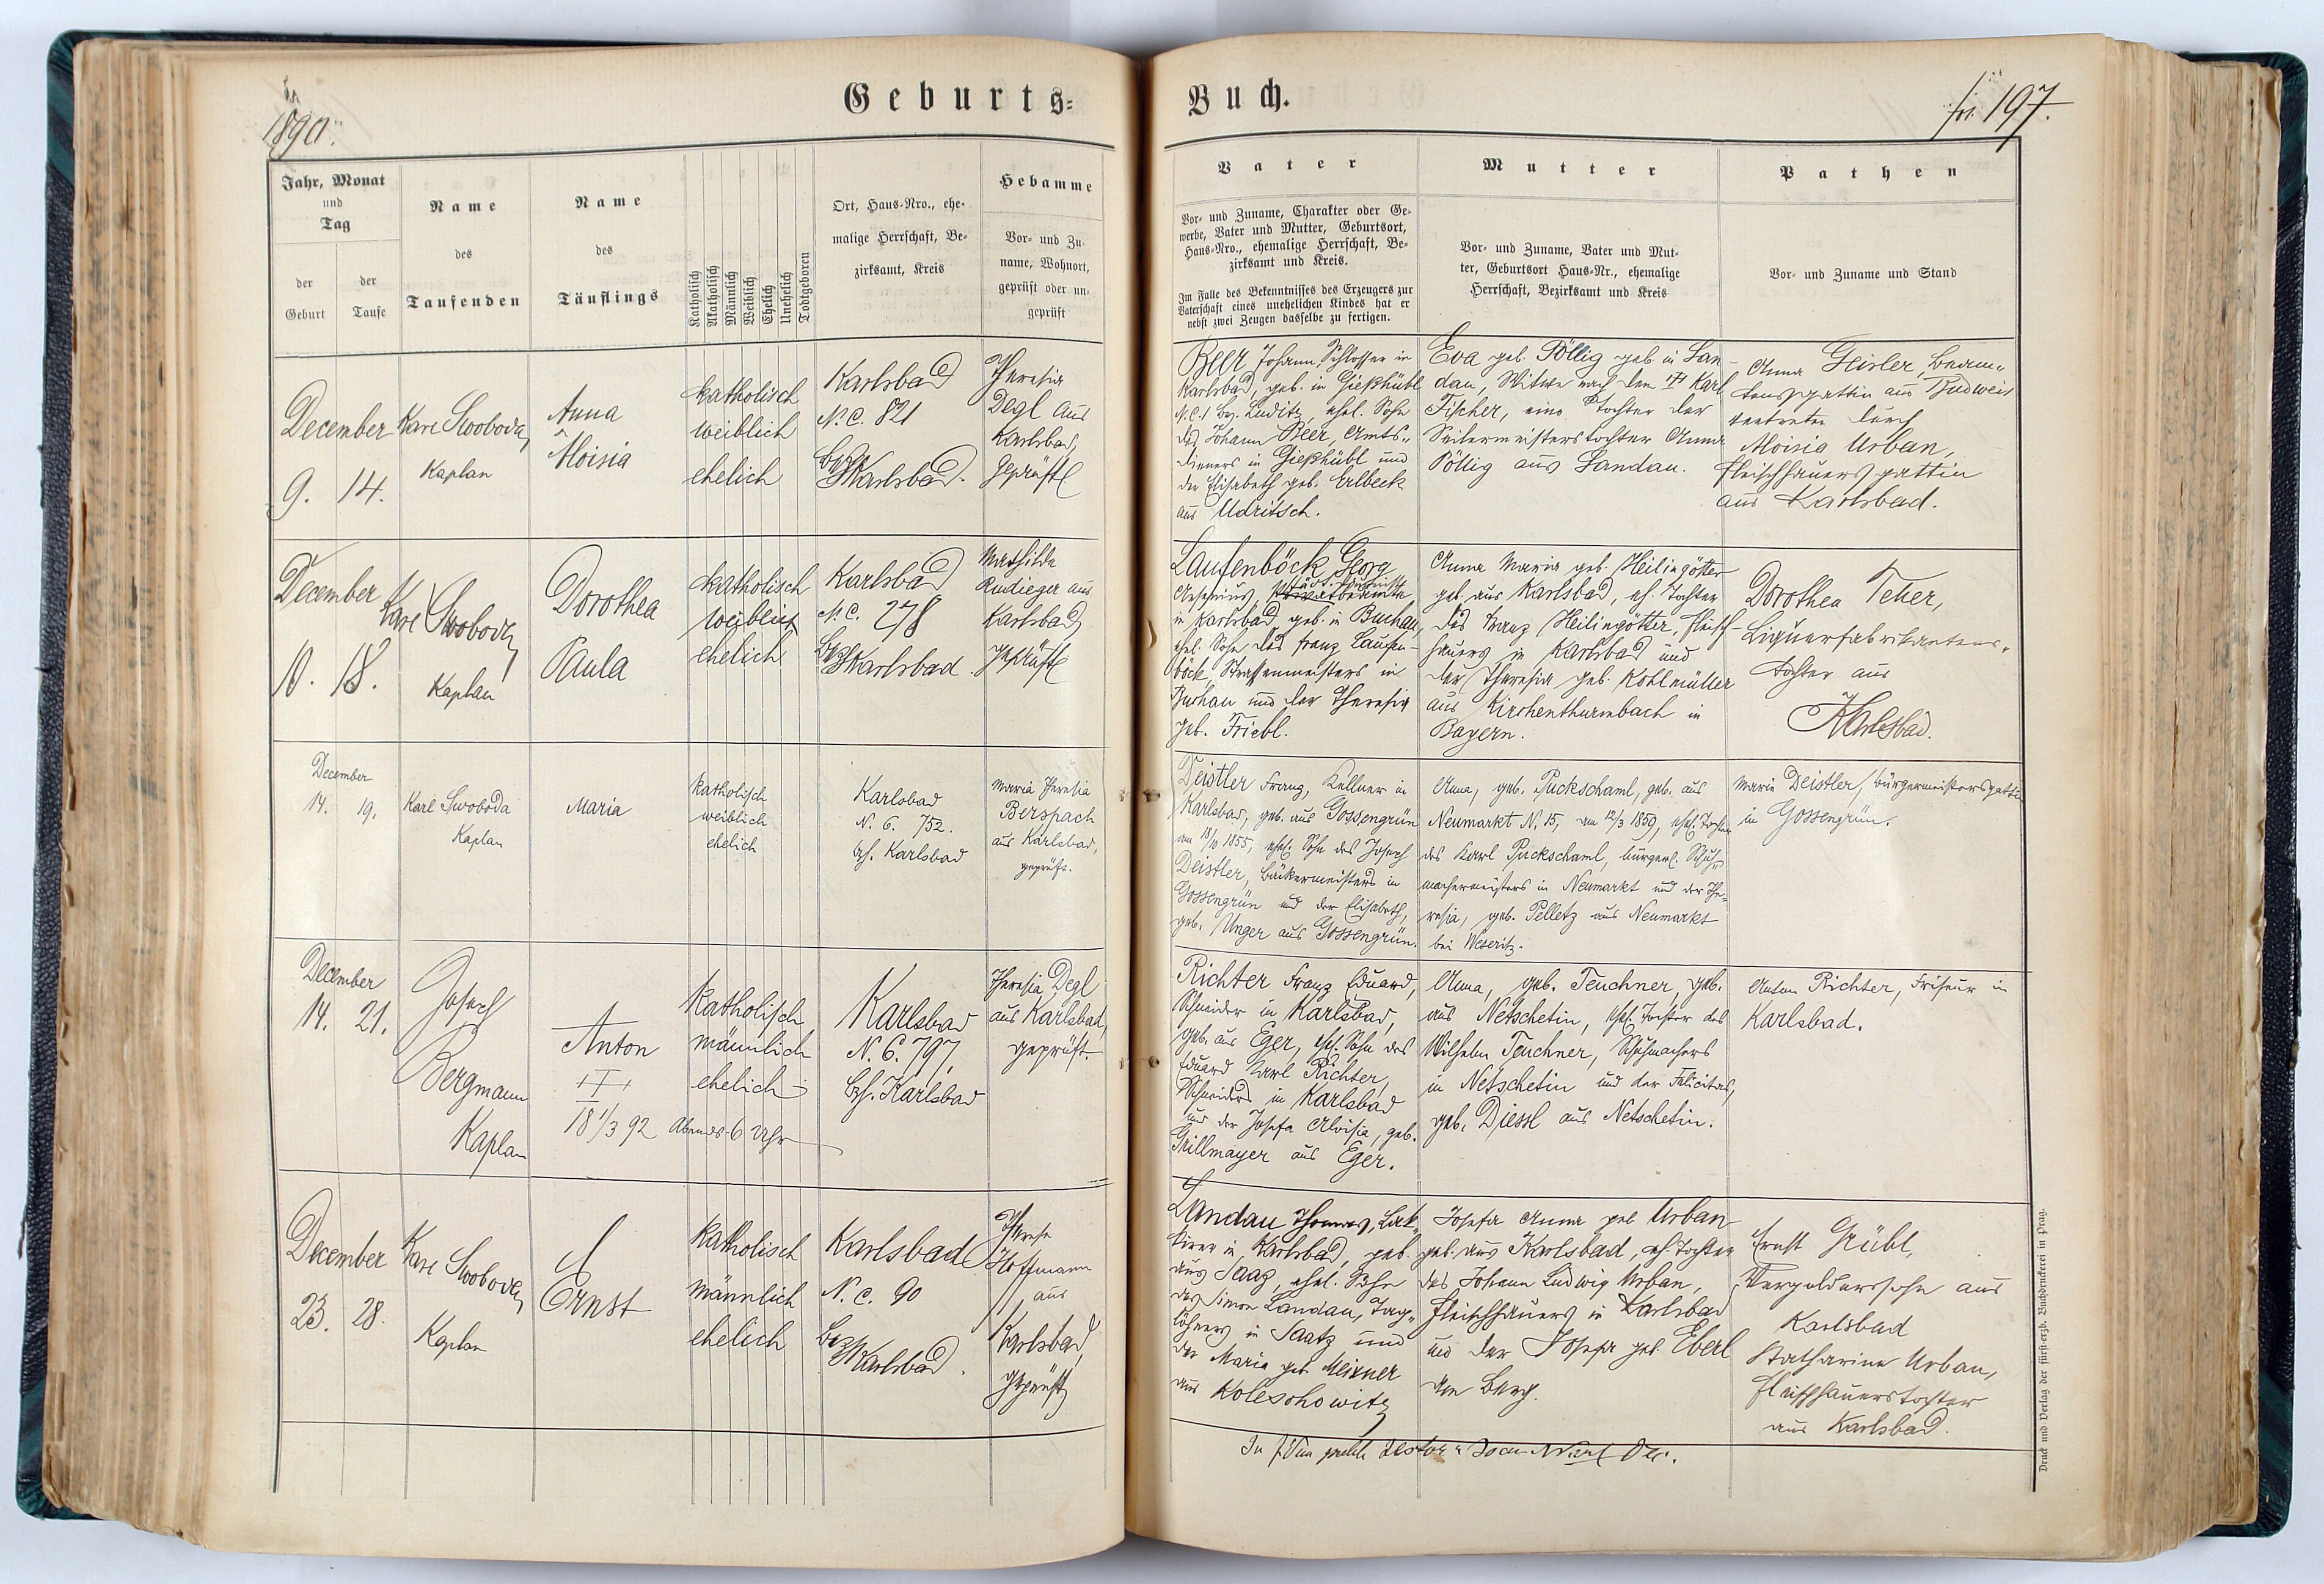 1890.
Geburts-
Buch.
fol. 197.
Jahr, Monat
und
Tag
der
Geburt
der
Taufe
Name
des
Taufenden
Name
des
Täuflings
Katholisch
Akatholisch
Männlich
Weiblich
Ehelich
Unehelich
Todtgeboren
Ort, Haus-Nro., ehe-
malige Herrschaft, Be-
zirksamt, Kreis
Hebamme
Vor- und Zu-
name, Wohnort,
geprüft oder un-
geprüft
Vater
Vor- und Zuname, Charakter oder Ge-
werbe, Vater und Mutter, Geburtsort,
Haus-Nro., ehemalige Herrschaft, Be-
zirksamt und Kreis.
Im Falle des Bekenntnisses des Erzeugers zur
Vaterschaft eines unehelichen Kindes hat er
nebst zwei Zeugen dasselbe zu fertigen.
Mutter
Vor- und Zuname, Vater und Mut-
ter, Geburtsort Haus-Nr., ehemalige
Herrschaft, Bezirksamt und Kreis
Pathen
Vor- und Zuname und Stand
December
9. 14.
Karl Swoboda,
Kaplan
Anna
Aloisia
katholisch
weiblich
ehelich
Karlsbad
N. C. 821
Bez. Karlsbad.
Theresia
Degl aus
Karlsbad,
geprüft
Beer Johann Schlosser in
Karlsbad, geb. in Gießhübl
N. C. 1 Bez. Luditz, ehel. Sohn
des Johann Beer, Amts-
dieners in Gießhübl und
der Elisabeth geb. Erlbeck
aus Udritsch.
Eva geb. Pöllig geb. in San-
dau, Witwe nach dem Karl
Fischer, eine Tochter der
Seilermeisterstochter Anna
Pöllig aus Sandau.
Anna Geisler, Beam-
tensgattin aus Budweis
vertreten durch
Aloisia Urban,
Fleischhauersgattin
aus Karlsbad.
December
10. 18.
Karl Swoboda,
Kaplan
Dorothea
Paula
katholisch
weiblich
ehelich
Karlsbad
N. C. 278
Bez. Karlsbad
Mathilde
Rudieger aus
Karlsbad,
geprüft
Laufenböck Georg
in Karlsbad geb. in Buchau,
ehel. Sohn des Franz Laufen-
böck, Straßenmeisters in
Buchau und der Theresia
geb. Friebl.
Anna Maria geb. Heilingötter
geb. aus Karlsbad, eh. Tochter
des Franz Heilingötter, Fleisch-
hauers in Karlsbad und
der Theresia geb. Kohlmüller
aus Kirchenthurmbach in
Bayern.
Dorothea Teller,
Liqueurfabrikantens-
tochter aus
Karlsbad.
December
14. 19.
Karl Swoboda
Kaplan
Maria
katholisch
weiblich
ehelich
Karlsbad
N. C. 752.
Bzh. Karlsbad
Maria Theresia
Berspach
aus Karlsbad,
geprüft.
Deistler Franz, Kellner in
Karlsbad, geb. aus Gossengrün
am 18/10 1855, ehel. Sohn des Joseph
Deistler, Bäckermeisters in
Gossengrün und der Elisabeth,
geb. Unger aus Gossengrün.
Anna, geb. Puckschaml, geb. aus
Neumarkt N. 15, am 12/3 1859, ehel. Tochter
des Karl Puckschaml, bürgerl. Schuh-
machermeisters in Neumarkt und der The-
resia, geb. Pelletz aus Neumarkt
bei Weseritz.
Maria Deistler, Bürgermeistersgattin
in Gossengrün.
December
14. 21.
Josef
Bergmann
Kaplan
Anton
18 1/3 92 Abends 6 Uhr
katholisch,
männlich
ehelich
Karlsbad
N. C. 797,
Bzh. Karlsbad
Theresia Degl
aus Karlsbad,
geprüft.
Richter Franz Eduard,
Schneider in Karlsbad,
geb. aus Eger, ehel. Sohn des
Eduard Karl Richter,
Schneiders in Karlsbad
und der Josefa Aloisia, geb.
Grillmayer aus Eger.
Anna, geb. Teuchner, geb.
aus Netschetin, ehel. Tochter des
Wilhelm Teuchner, Schuhmachers
in Netschetin und der Felicitas,
geb. Diessl aus Netschetin.
Anton Richter, Friseur in
Karlsbad.
December
23. 28.
Karl Swoboda,
Kaplan
Ernst
katholisch
männlich
ehelich
Karlsbad
N. C. 90
Bez. Karlsbad.
Therese
Hoffmann
aus
Karlsbad,
geprüft
Landau Thomas, Lak-
kirer in Karlsbad, geb.
aus Saaz, ehel. Sohn
des Simon Landau, Tag-
löhners in Saatz und
der Maria geb. Meixner
aus Koleschowitz
Josefa Anna geb. Urban
geb. aus Karlsbad, eh. Tochter
des Johann Ludwig Urban,
Fleischhauers in Karlsbad
und der Josefa geb. Eberl
Ernst Gübl,
Vergolderssohn aus
Karlsbad
Katharina Urban,
Fleischhauerstochter
aus Karlsbad.
Druck und Verlag der fürst-erzb. Buchdruckerei in Prag.